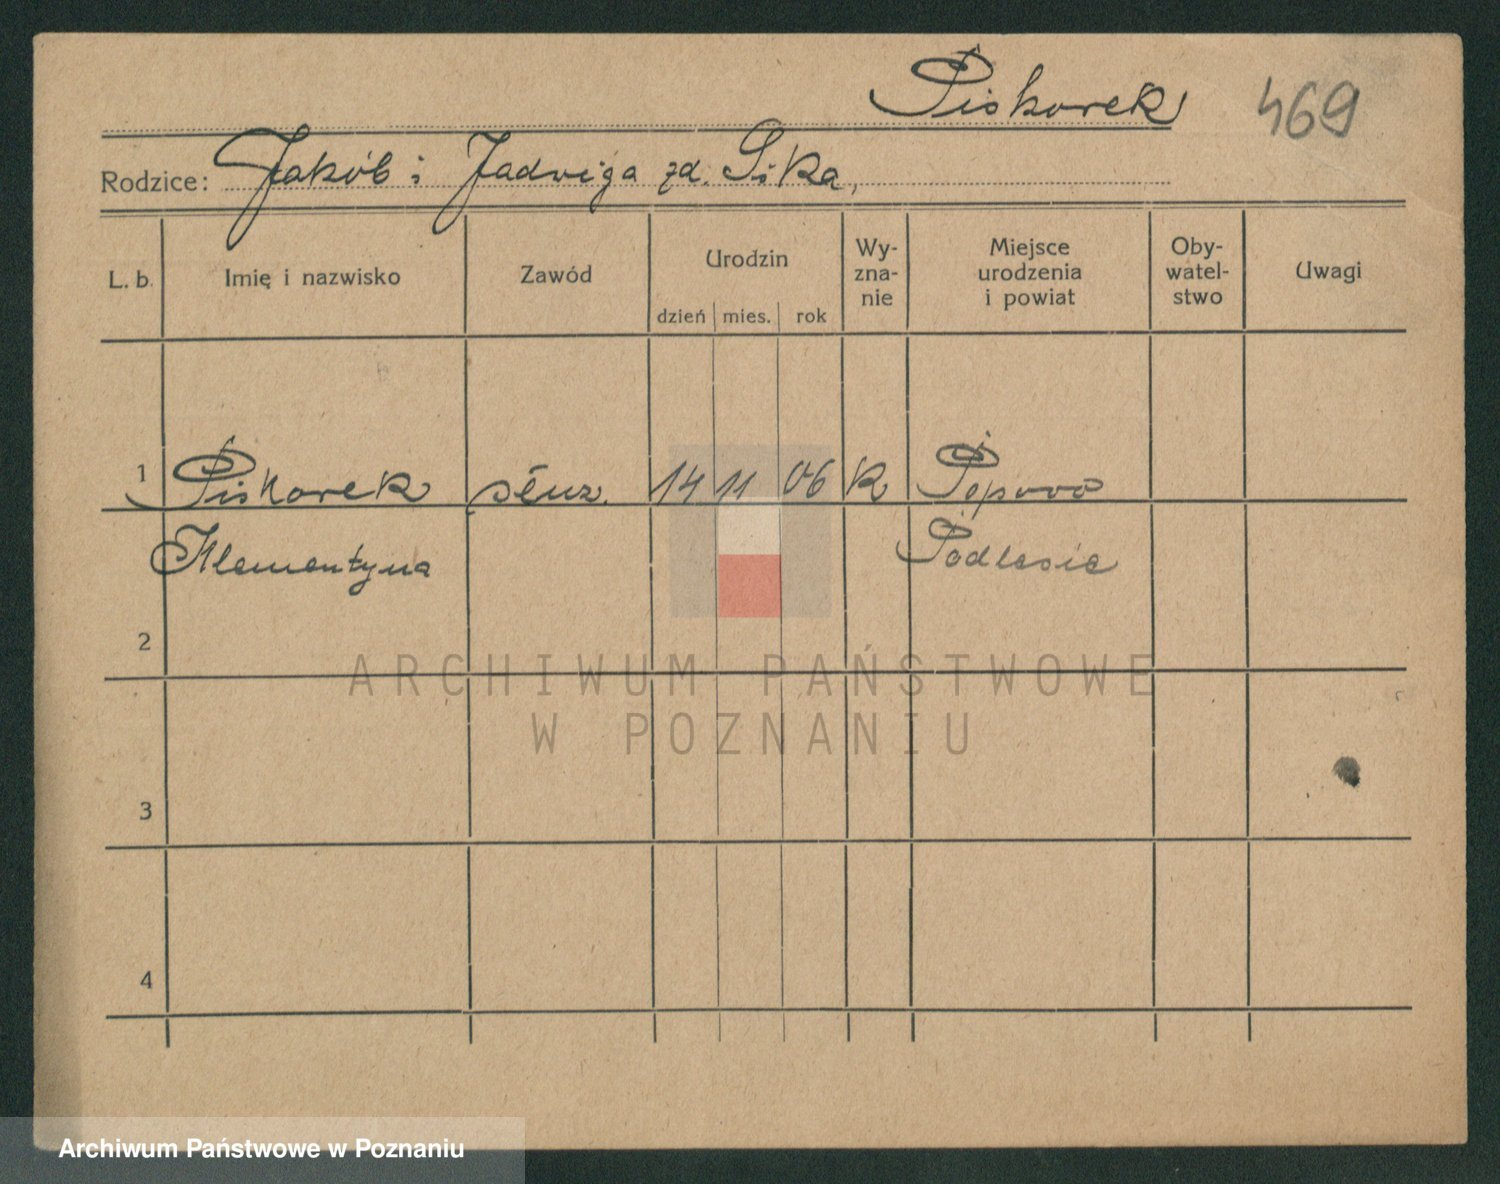 Piskorek 469
Rodzice: Jakób i Jadwiga zd. Sika,
L. b. Imię i nazwisko Zawód Urodzin dzień mies. rok Wy-zna-nie Miejsce urodzenia i powiat Oby-watel-stwo Uwagi
1 Piskorek służ. 14 11 06 K Popowo
Klementyna Podlesie
2
ARCHIWUM PAŃSTWOWE
W POZNANIU
3
4
Archiwum Państwowe w Poznaniu